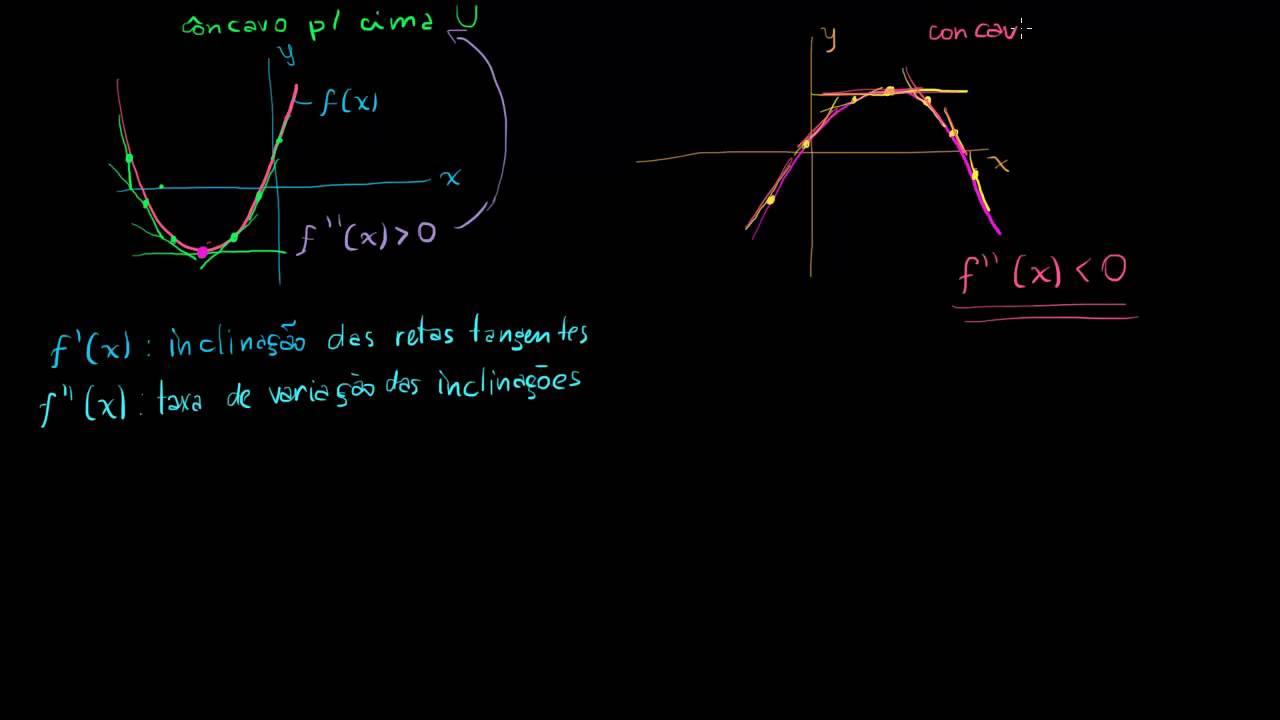 côncavo p/ cima U
y
f(x)
x
f''(x) > 0
y
concav
x
f''(x) < 0
f'(x) : inclinação das retas tangentes
f''(x) : taxa de variação das inclinações